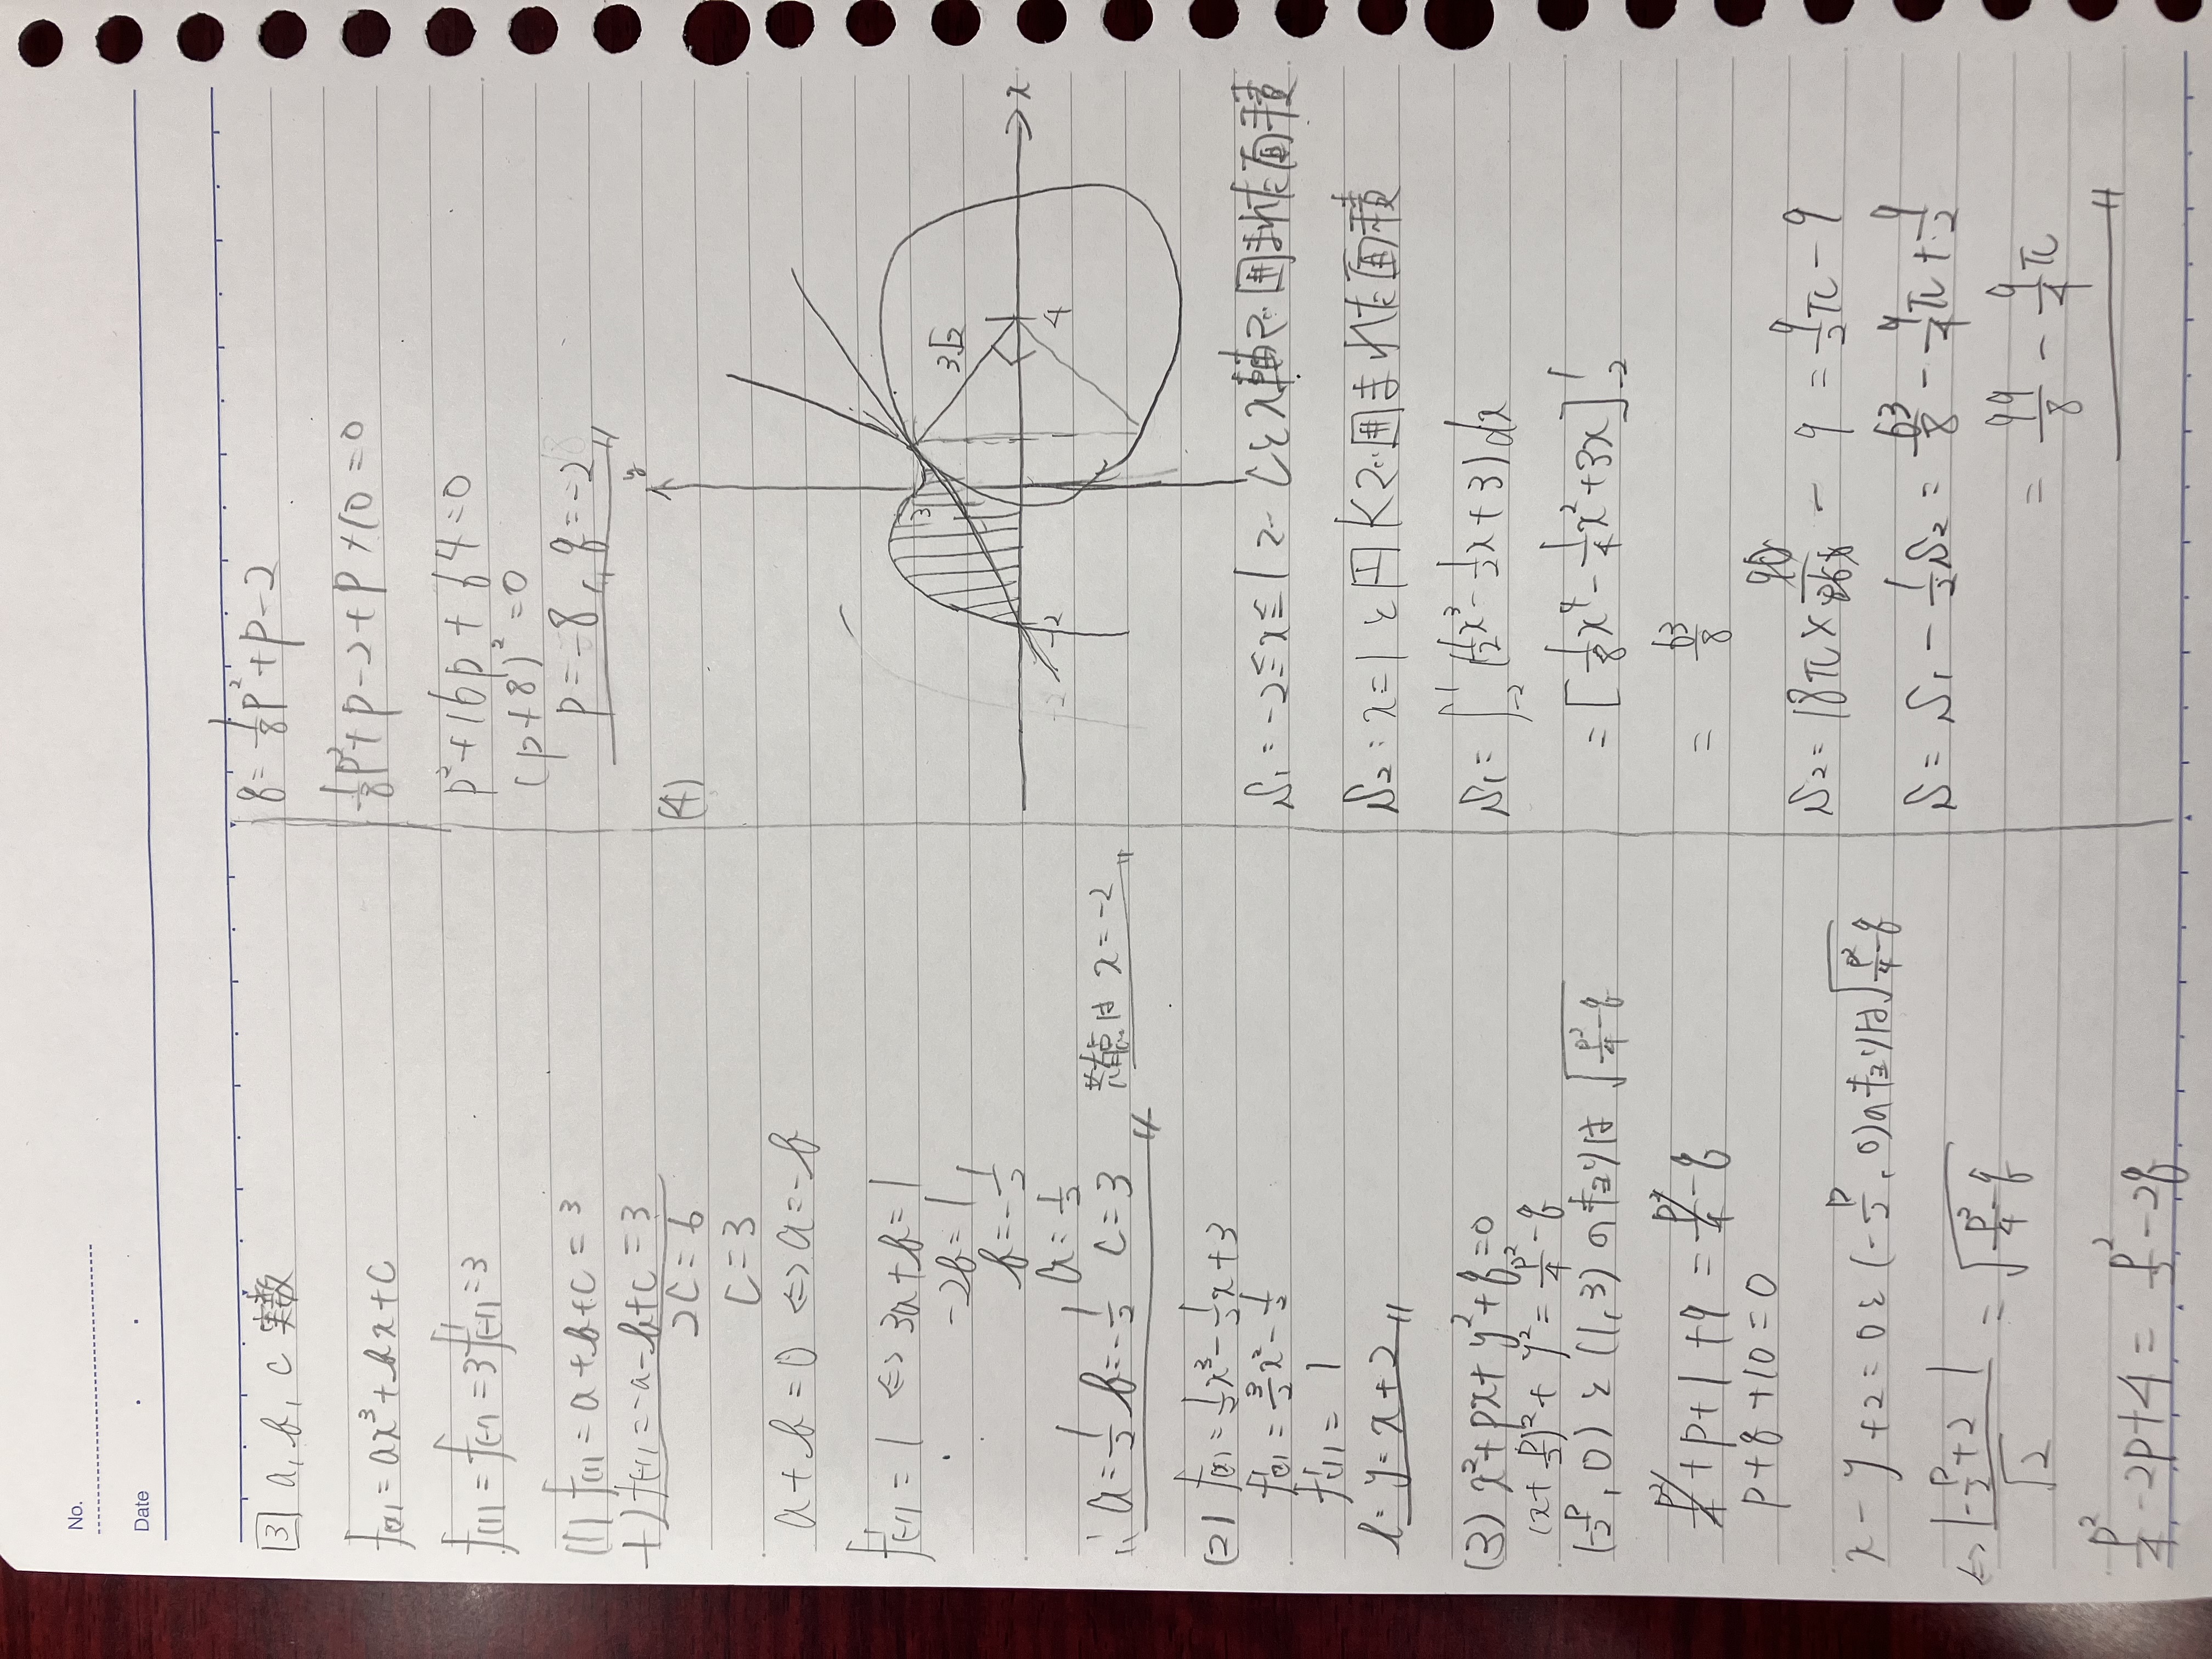 No.
Date
[3] a, b, c 実数
f(x) = ax³ + bx + c
f(1) = f(-1) = 3f'(-1) = 3
(1) f(1) = a + b + c = 3
+) f(-1) = -a - b + c = 3
2c = 6
c = 3
a + b = 0 ⇔ a = -b
f'(-1) = 1 ⇔ 3a + b = 1
-2b = 1
b = -1/2
a = 1/2
a = 1/2 b = -1/2 c = 3
共有点は x = -2
(2) f(x) = 1/2x³ - 1/2x + 3
f'(x) = 3/2x² - 1/2
f'(1) = 1
l: y = x + 2
(3) x² + px + y² + q = 0
(x + p/2)² + y² = p²/4 - q
(-p/2, 0) と (1, 3) のキョリは √(p²/4 - q)
p²/4 + p + 1 + 9 = p²/4 - q
p + q + 10 = 0
x - y + 2 = 0 と (-p/2, 0) のキョリは √(p²/4 - q)
⇔ |-p/2 + 2|/√2 = √(p²/4 - q)
p²/4 - 2p + 4 = p²/2 - 2q
q = 1/8p² + p - 2
1/8p² + p - 2 + p + 10 = 0
p² + 16p + 64 = 0
(p + 8)² = 0
p = -8, q = -2
(4)
y
x
3
3√2
4
-2
S₁: -2 ≦ x ≦ 1 で C と x軸で囲まれた面積
S₂: x = 1 と円Kで囲まれた面積
S₁ = ∫₋₂¹ (1/2x³ - 1/2x + 3) dx
= [1/8x⁴ - 1/4x² + 3x]₋₂¹
= 63/8
S₂ = 18π × 90/360 - 9 = 9/2π - 9
S = S₁ - 1/2S₂ = 63/8 - 9/4π + 9/2
= 99/8 - 9/4π